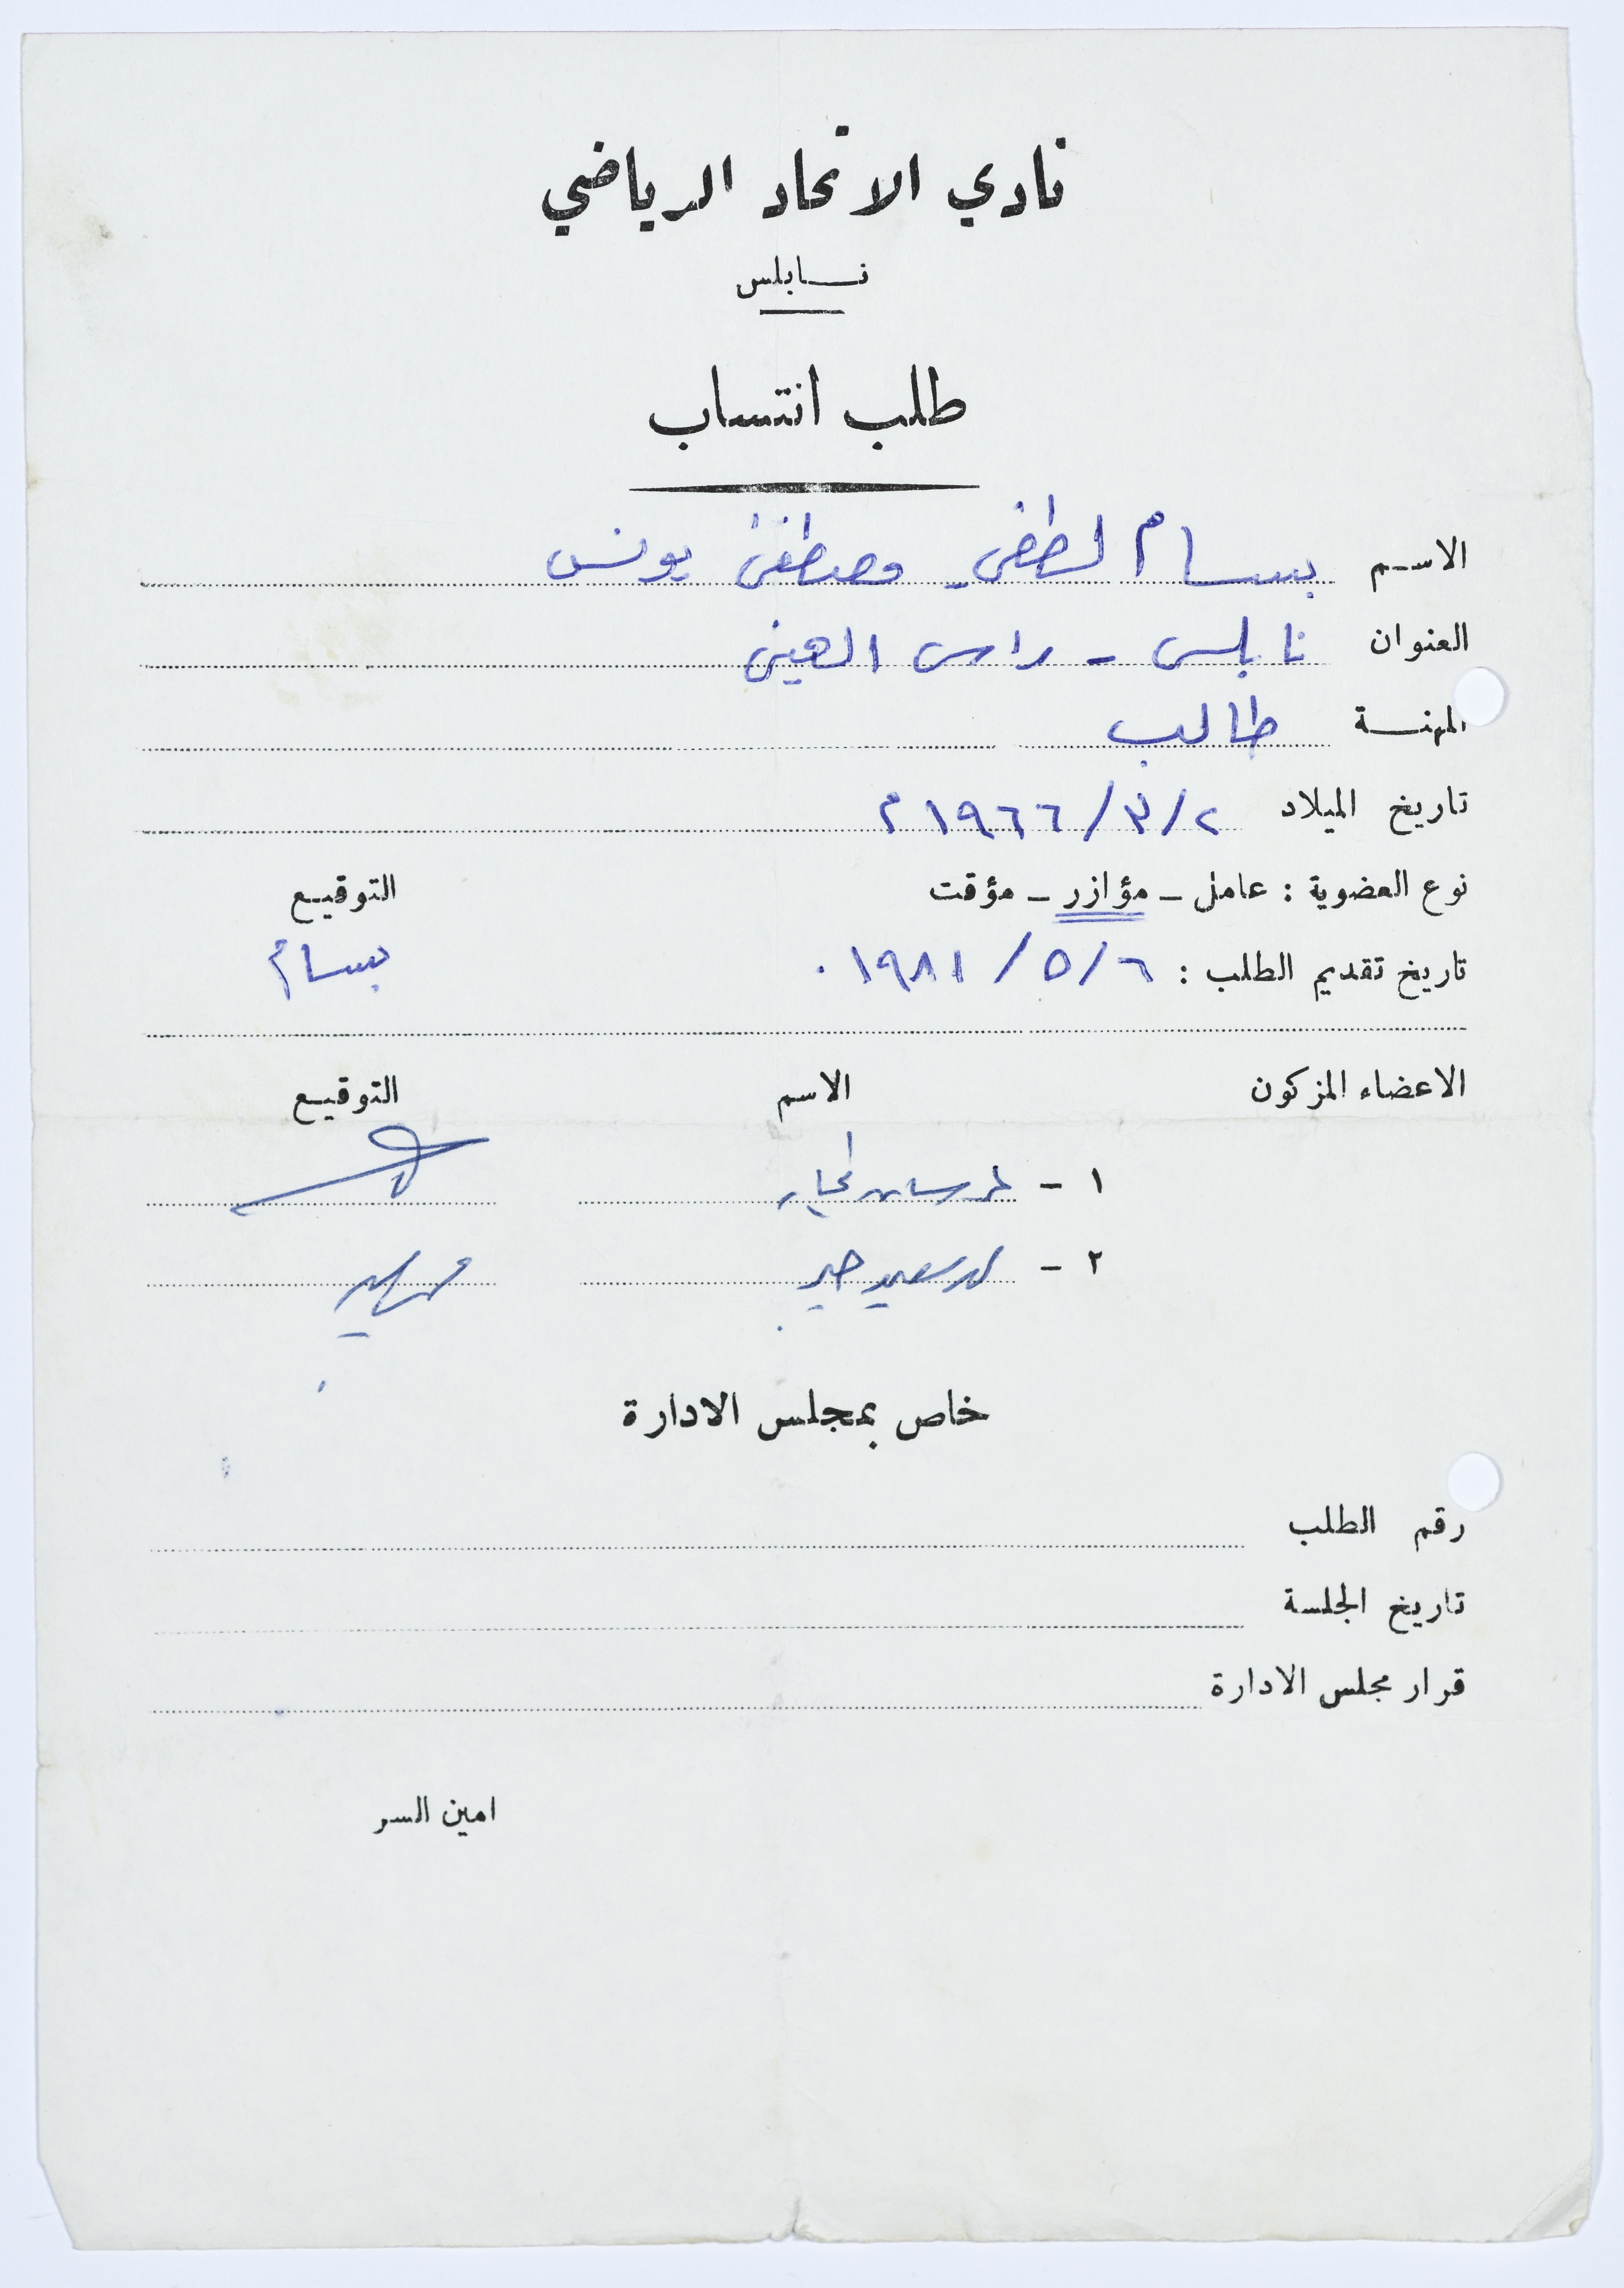 نادي الاتحاد الرياضي
نابلس
طلب انتساب
الاسم بسام لطفي مصطفى يونس
العنوان نابلس - راس العين
المهنة طالب
تاريخ الميلاد ٢/٣/١٩٦٦ م
نوع العضوية : عامل - مؤازر - مؤقت التوقيع
تاريخ تقديم الطلب : ٦/٥/١٩٨١ . بسام
الاعضاء المزكون الاسم التوقيع
١ -
٢ -
خاص بمجلس الادارة
رقم الطلب
تاريخ الجلسة
قرار مجلس الادارة
امين السر